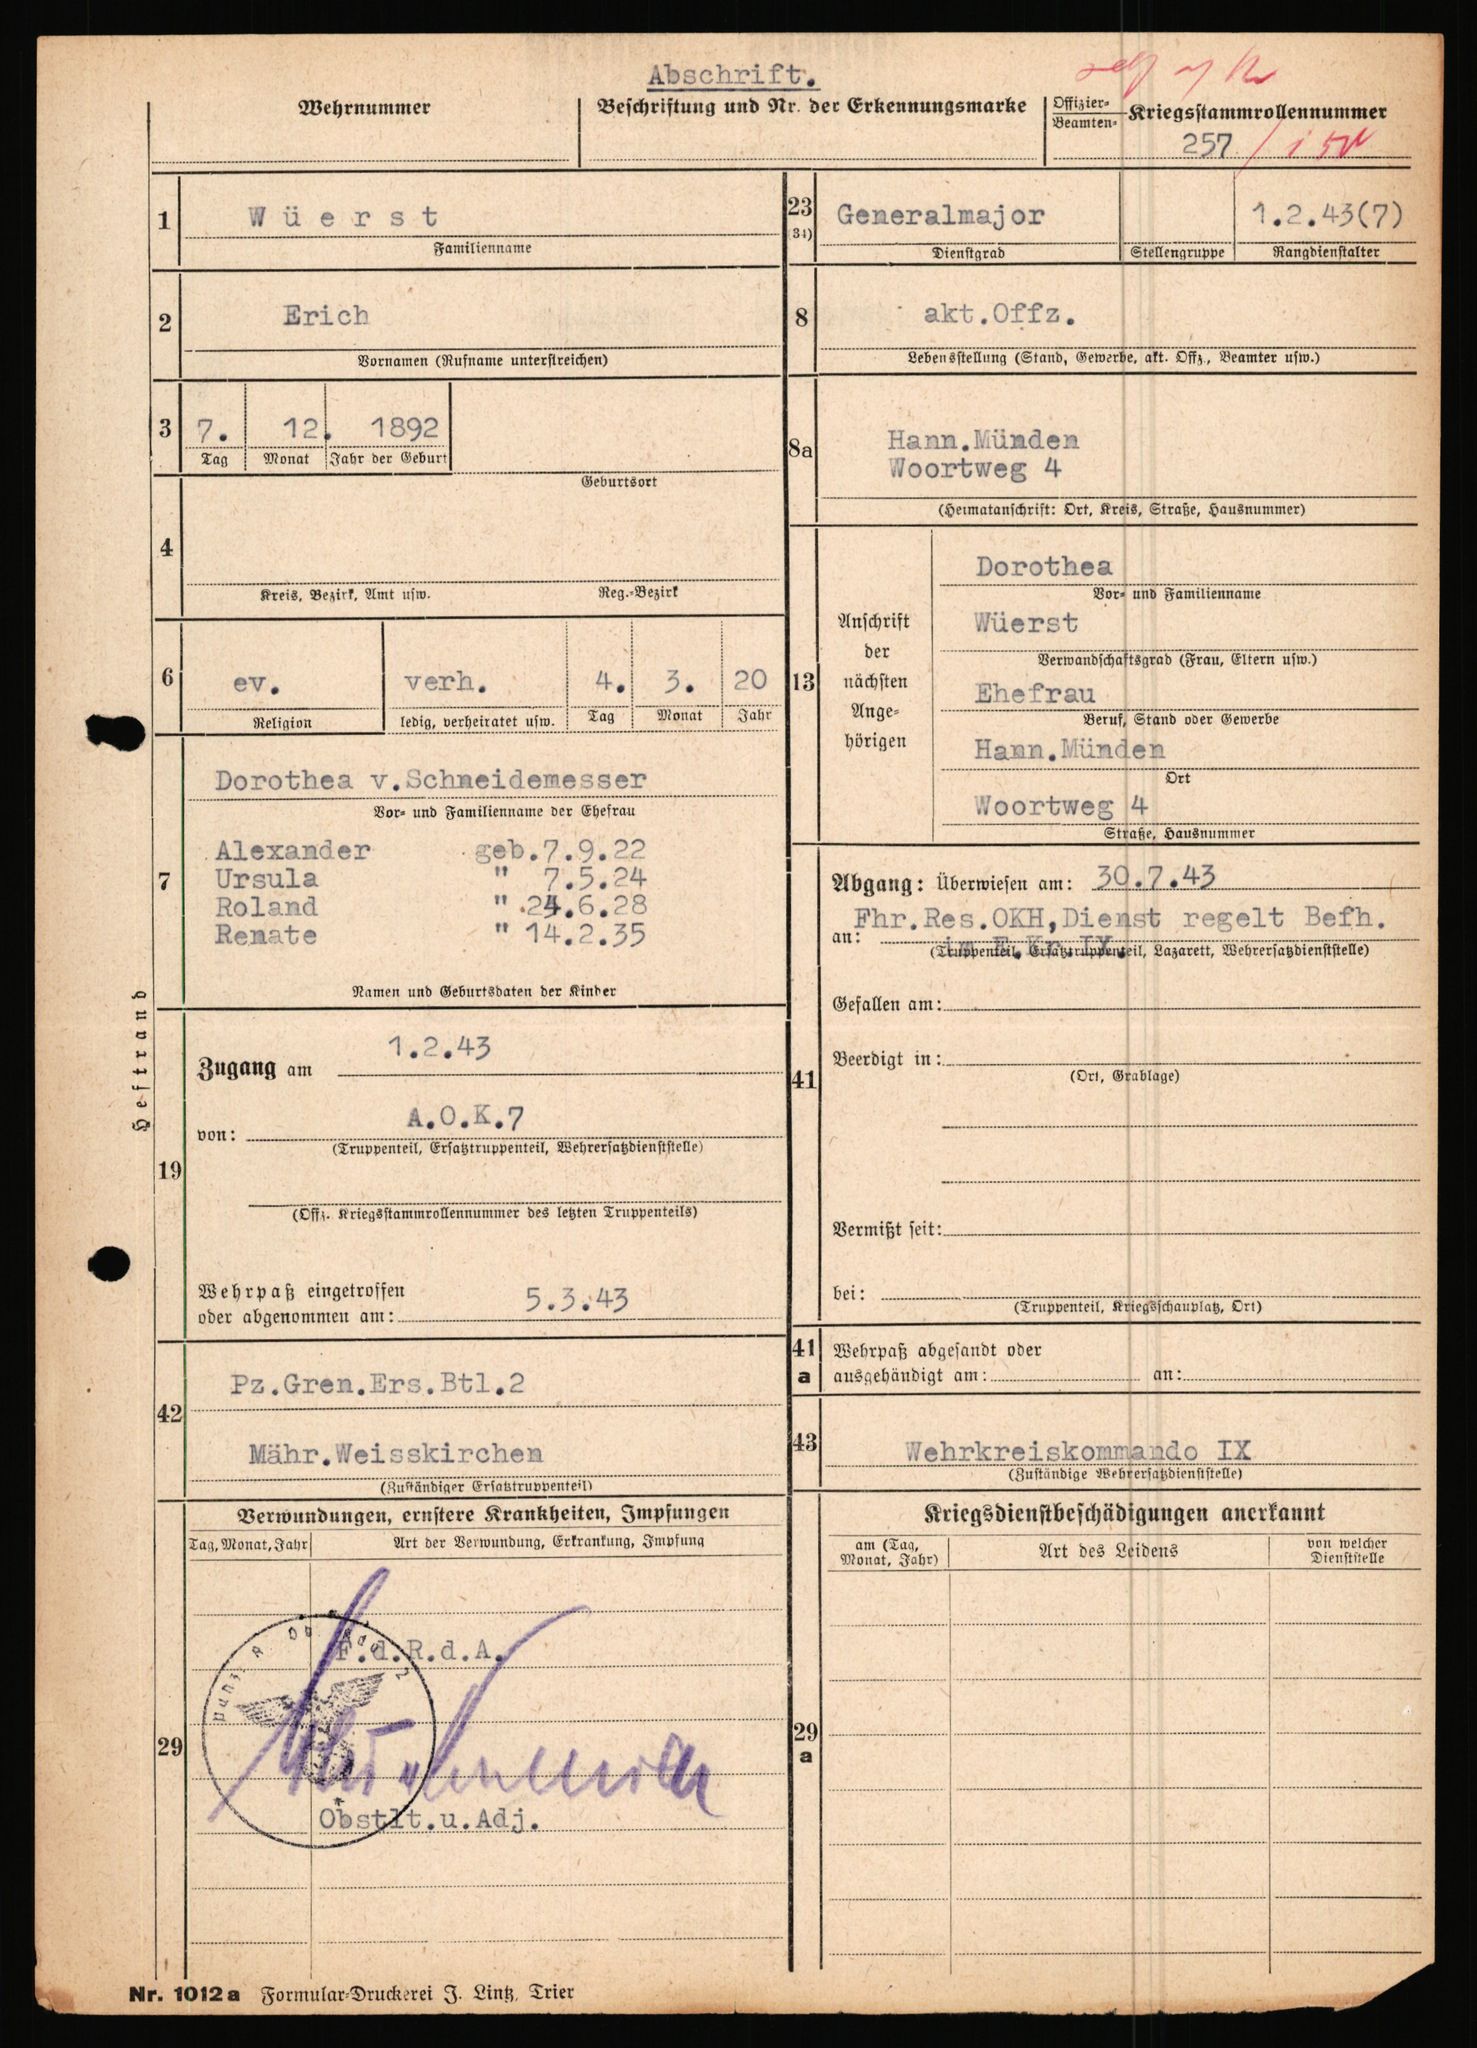 Abschrift.
Wehrnummer
Beschriftung und Nr. der Erkennungsmarke
Offizier-
Beamten-
Kriegsstammrollennummer
257
1
Wüerst
Familienname
2
Erich
Vornamen (Rufname unterstreichen)
3
7. 12. 1892
Tag Monat Jahr der Geburt
Geburtsort
4
Kreis, Bezirk, Amt usw. Reg.-Bezirk
6
ev. verh. 4. 3. 20
Religion ledig, verheiratet usw. Tag Monat Jahr
7
Dorothea v.Schneidemesser
Vor- und Familienname der Ehefrau
Alexander geb.7.9.22
Ursula " 7.5.24
Roland " 24.6.28
Renate " 14.2.35
Namen und Geburtsdaten der Kinder
Heftrand
19
Zugang am 1.2.43
von: A.O.K.7
(Truppenteil, Ersatztruppenteil, Wehrersatzdienststelle)
(Offz. Kriegsstammrollennummer des letzten Truppenteils)
Wehrpaß eingetroffen
oder abgenommen am: 5.3.43
42
Pz.Gren.Ers.Btl.2
Mähr.Weisskirchen
(Zuständiger Ersatztruppenteil)
Verwundungen, ernstere Krankheiten, Impfungen
Tag, Monat, Jahr Art der Verwundung, Erkrankung, Impfung
29
F.d.R.d.A.
Obstlt.u.Adj.
23
34)
Generalmajor 1.2.43(7)
Dienstgrad Stellengruppe Rangdienstalter
8
akt.Offz.
Lebensstellung (Stand, Gewerbe, akt. Offz., Beamter usw.)
8a
Hann.Münden
Woortweg 4
(Heimatanschrift: Ort, Kreis, Straße, Hausnummer)
13
Anschrift
der
nächsten
Ange-
hörigen
Dorothea
Vor- und Familienname
Wüerst
Verwandschaftsgrad (Frau, Eltern usw.)
Ehefrau
Beruf, Stand oder Gewerbe
Hann.Münden
Ort
Woortweg 4
Straße, Hausnummer
41
Abgang: Überwiesen am: 30.7.43
Fhr.Res.OKH,Dienst regelt Befh.
an: im E.Kr.IX.
(Truppenteil, Ersatztruppenteil, Lazarett, Wehrersatzdienststelle)
Gefallen am:
Beerdigt in:
(Ort, Grablage)
Vermißt seit:
bei:
(Truppenteil, Kriegsschauplatz, Ort)
41
a
Wehrpaß abgesandt oder
ausgehändigt am: an:
43
Wehrkreiskommando IX
(Zuständige Wehrersatzdienststelle)
Kriegsdienstbeschädigungen anerkannt
am (Tag,
Monat, Jahr)
Art des Leidens
von welcher
Dienststelle
29
a
Nr. 1012a Formular-Druckerei J. Lintz, Trier